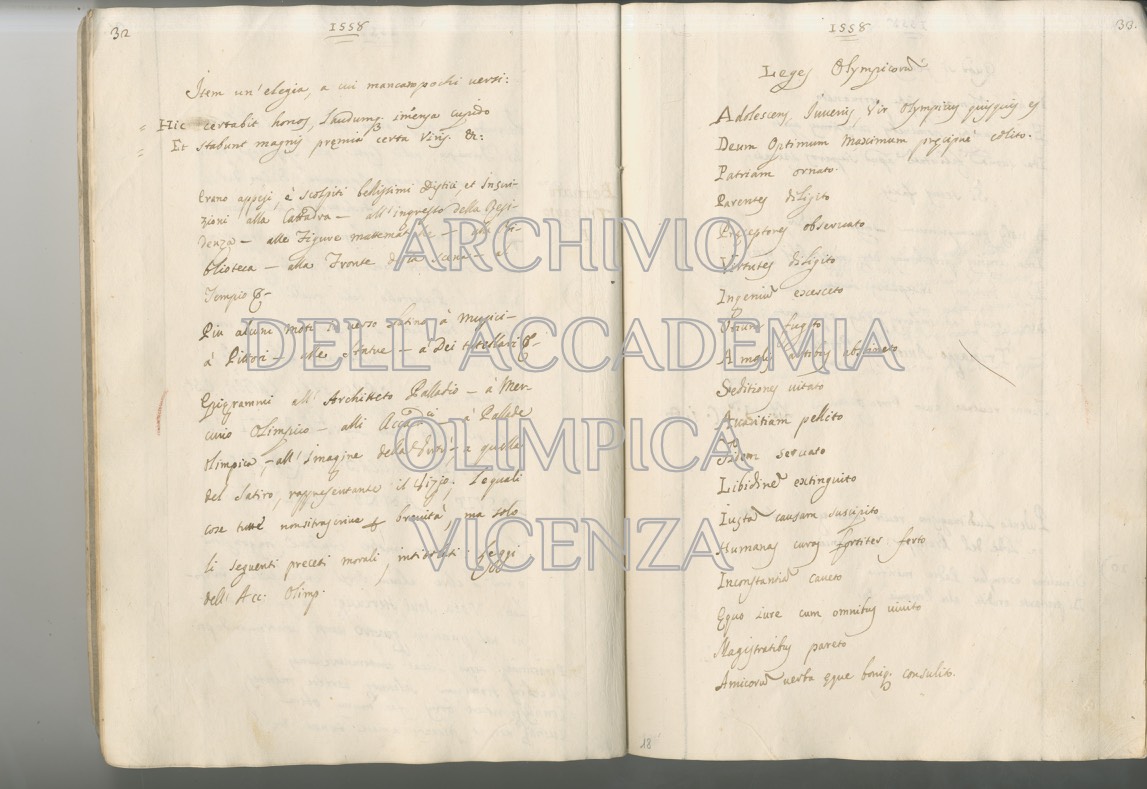 32
1558
Item un' elegia, a cui mancano pochi versi:
Hic certabit honos, laudumq. imensa cupido
Et stabunt magnis premia certa viris. &c:
Erano appesi, e scolpiti bellissimi Distici et Inscri-
zioni alla Cattedra – all' ingresso della Resi-
denza – alle Figure mattematiche – alla Bi-
blioteca – alla Fronte della scena – al
Tempio &–
Più alcuni moti in verso latino à Musici –
à Pittori – alle statue – a Dei tutellari &–
Epigrammi all' Architteto Palladio – à Mer-
curio Olimpico – alli Accad.ci – à Pallade
olimpica – all' Imagine della Virtù – a quella
del Satiro, rappresentante il Vizio. Le quali
cose tutte non si trascrive p brevità, ma solo
li seguenti preceti morali, intitolati: Leggi
dell' Acc: Olimp.
33.
1558
Leges Olympicorū
Adolescens, Juvenis, Vir Olympicus quisquis es
Deum Optimum Maximum precipuè colito.
Patriam ornato.
Parentes diligito
Preceptores observato
Virtutes diligito
Ingeniū exerceto
Otium fugito
A malis artibus abstineto
Seditiones vitato
Avaritiam pellito
Fidem servato
Libidinē extinguito
Iustā causam suscipito
Humanas curas fortiter ferto
Inconstantiā caveto
Equo iure cum omnibus vivito
Magistratibus pareto
Amicorū verba eque boniq. consulito.
18
ARCHIVIO
DELL'ACCADEMIA
OLIMPICA
VICENZA